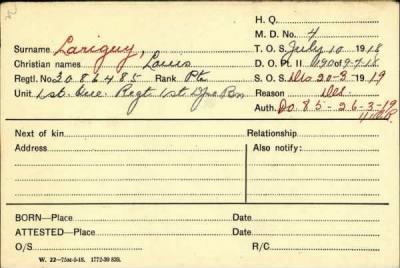 H. Q.
M. D. No. 4
Surname Lariguy, T. O. S. July 10 1918
Christian names Louis D. O. Pt. II 190 of 9-7-18
Regtl. No. 3086485 Rank Pte S. O. S. Des 20-3-1919
Unit 1st. Que. Regt 1st Dpo Bn Reason Des.
Auth. Do. 85-26-3-19
Next of kin Relationship
Address Also notify:
BORN—Place Date
ATTESTED—Place Date
O/S R/C
W. 22—75M-5-18. 1772-39 838.